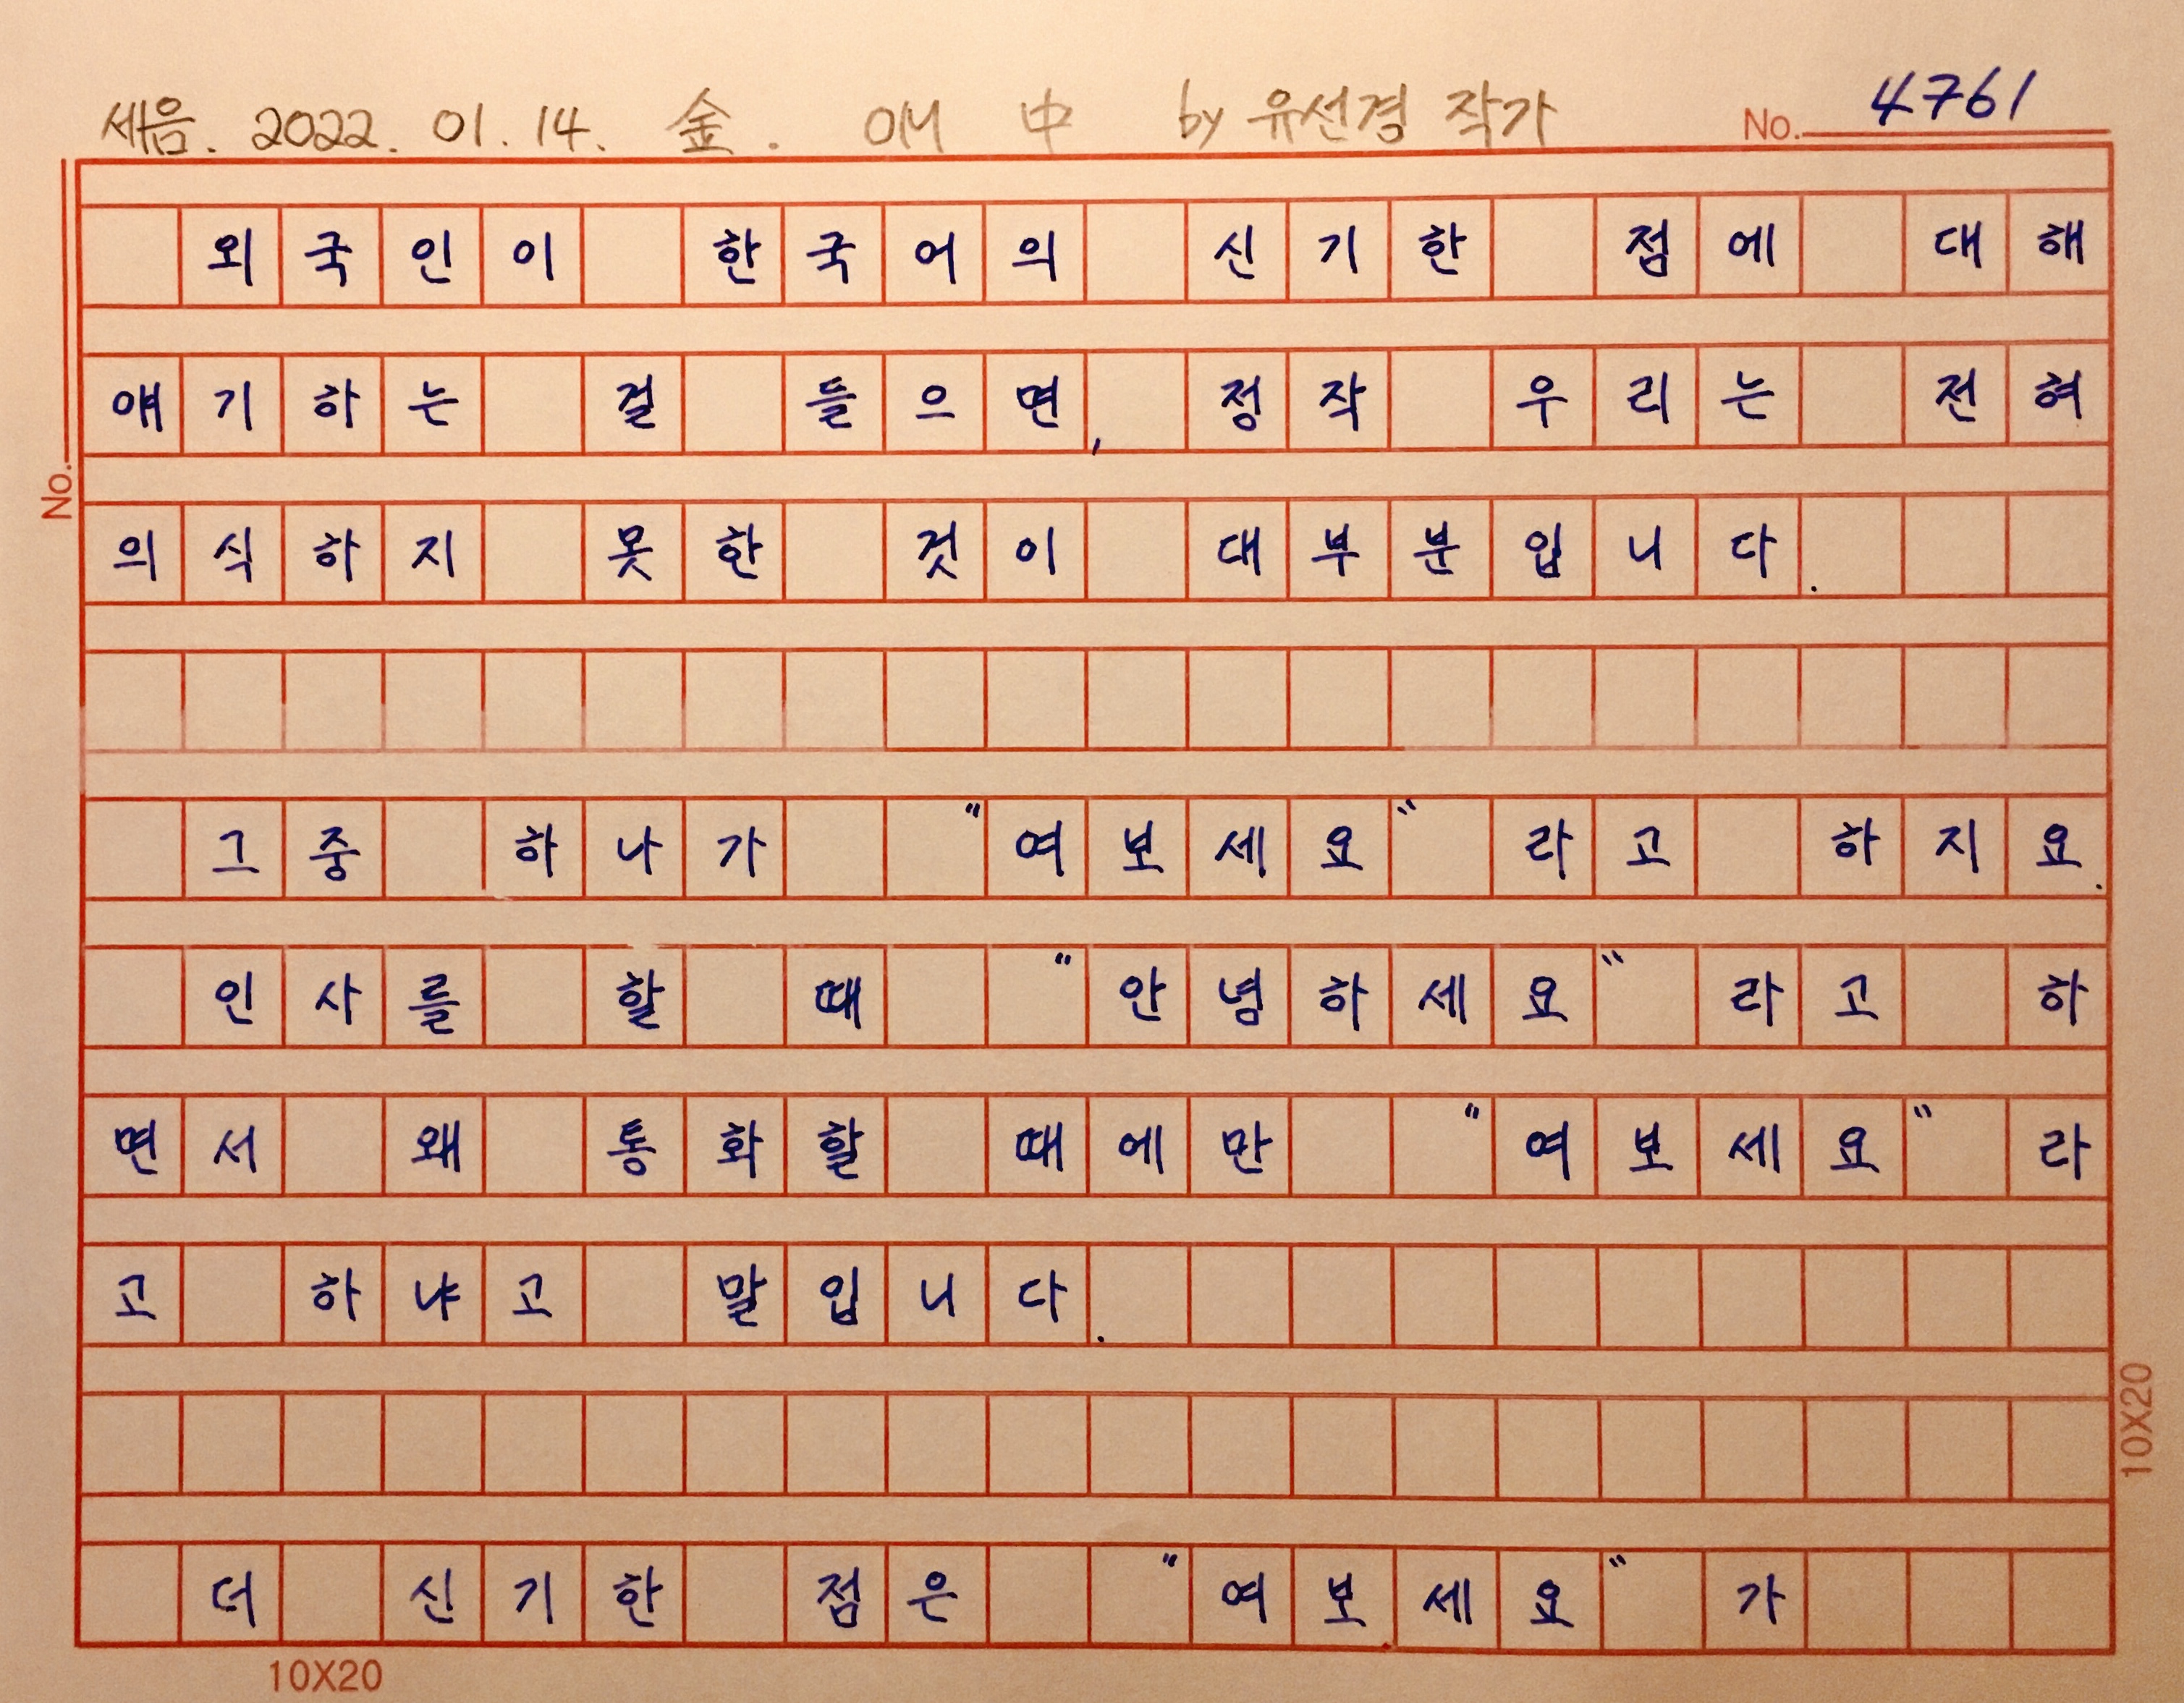 세음. 2022. 01. 14. 金. OM 中 by 유선경 작가
No. 4761
외국인이 한국어의 신기한 점에 대해
얘기하는 걸 들으면, 정작 우리는 전혀
의식하지 못한 것이 대부분입니다.
그중 하나가 "여보세요" 라고 하지요.
인사를 할 때 "안녕하세요" 라고 하
면서 왜 통화할 때에만 "여보세요" 라
고 하냐고 말입니다.
더 신기한 점은 "여보세요" 가
No.
10X20
10X20